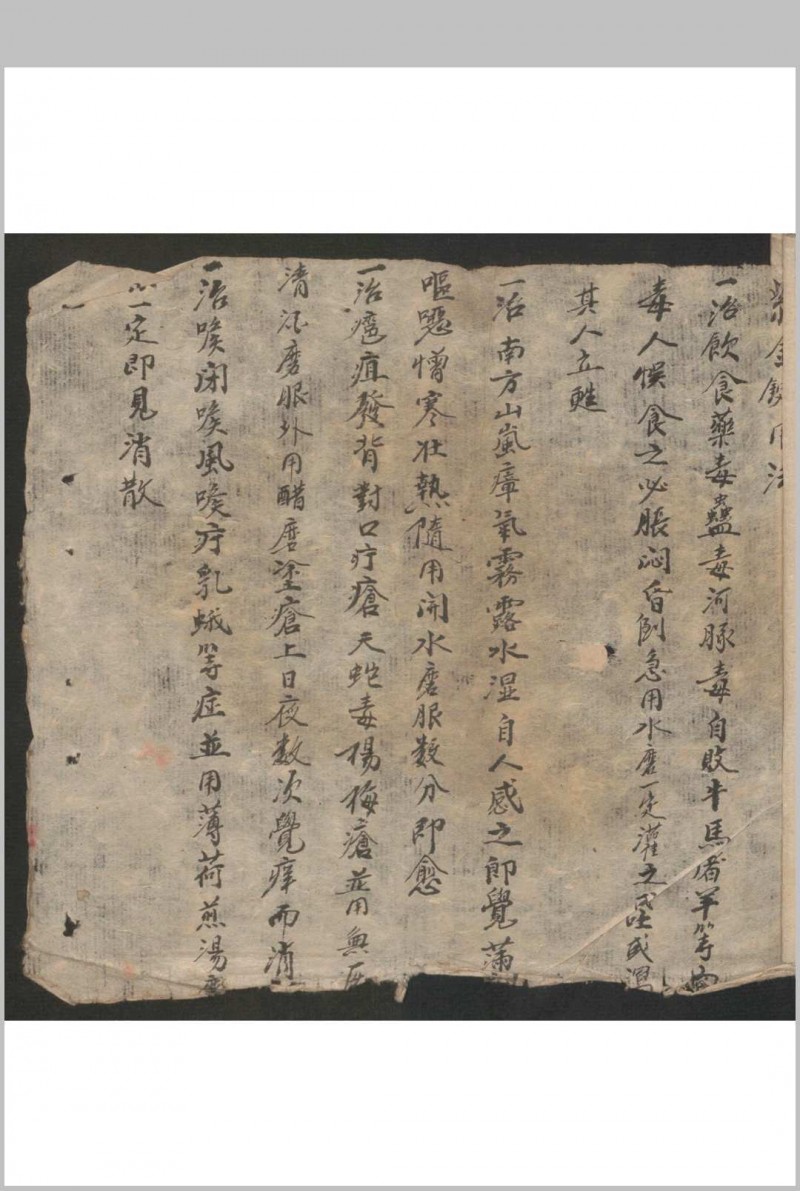 紫金錠用法
一治飲食藥毒蠱毒河豚毒自敗牛馬猪羊等肉
毒人悞食之必脹悶昏倒急用水磨一定灌之或吐或瀉
其人立甦
一治南方山嵐瘴氣霧露水湿自人感之即覺滿
嘔噁憎寒壮熱隨用開水磨服数分即愈
一治癰疽發背對口疔瘡天蛇毒楊梅瘡並用無灰
清酒磨服外用醋磨塗瘡上日夜数次覺痒而消
一治喉闭喉風喉疔乳蛾等症並用薄荷煎湯磨
一定即見消散